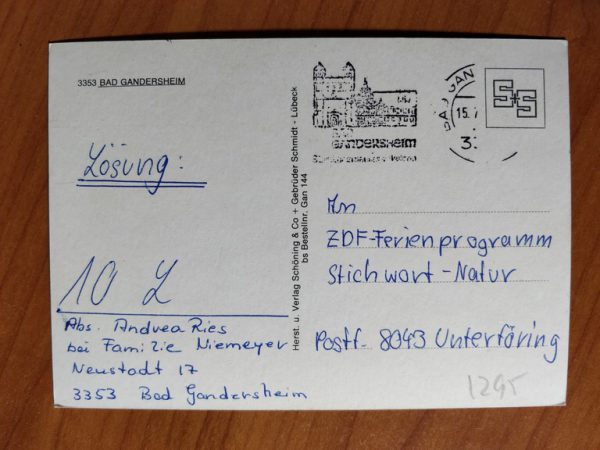 3353 BAD GANDERSHEIM
Lösung:
10 L
Abs. Andrea Ries
bei Familie Niemeyer
Neustadt 17
3353 Bad Gandersheim
Herst. u. Verlag Schöning & Co + Gebrüder Schmidt - Lübeck
bs Bestellnr. Gan 144
GANDERSHEIM
BAD GAN
15.
3
S+S
An
ZDF-Ferienprogramm
Stichwort-Natur
Postf. 8043 Unterföring
1295